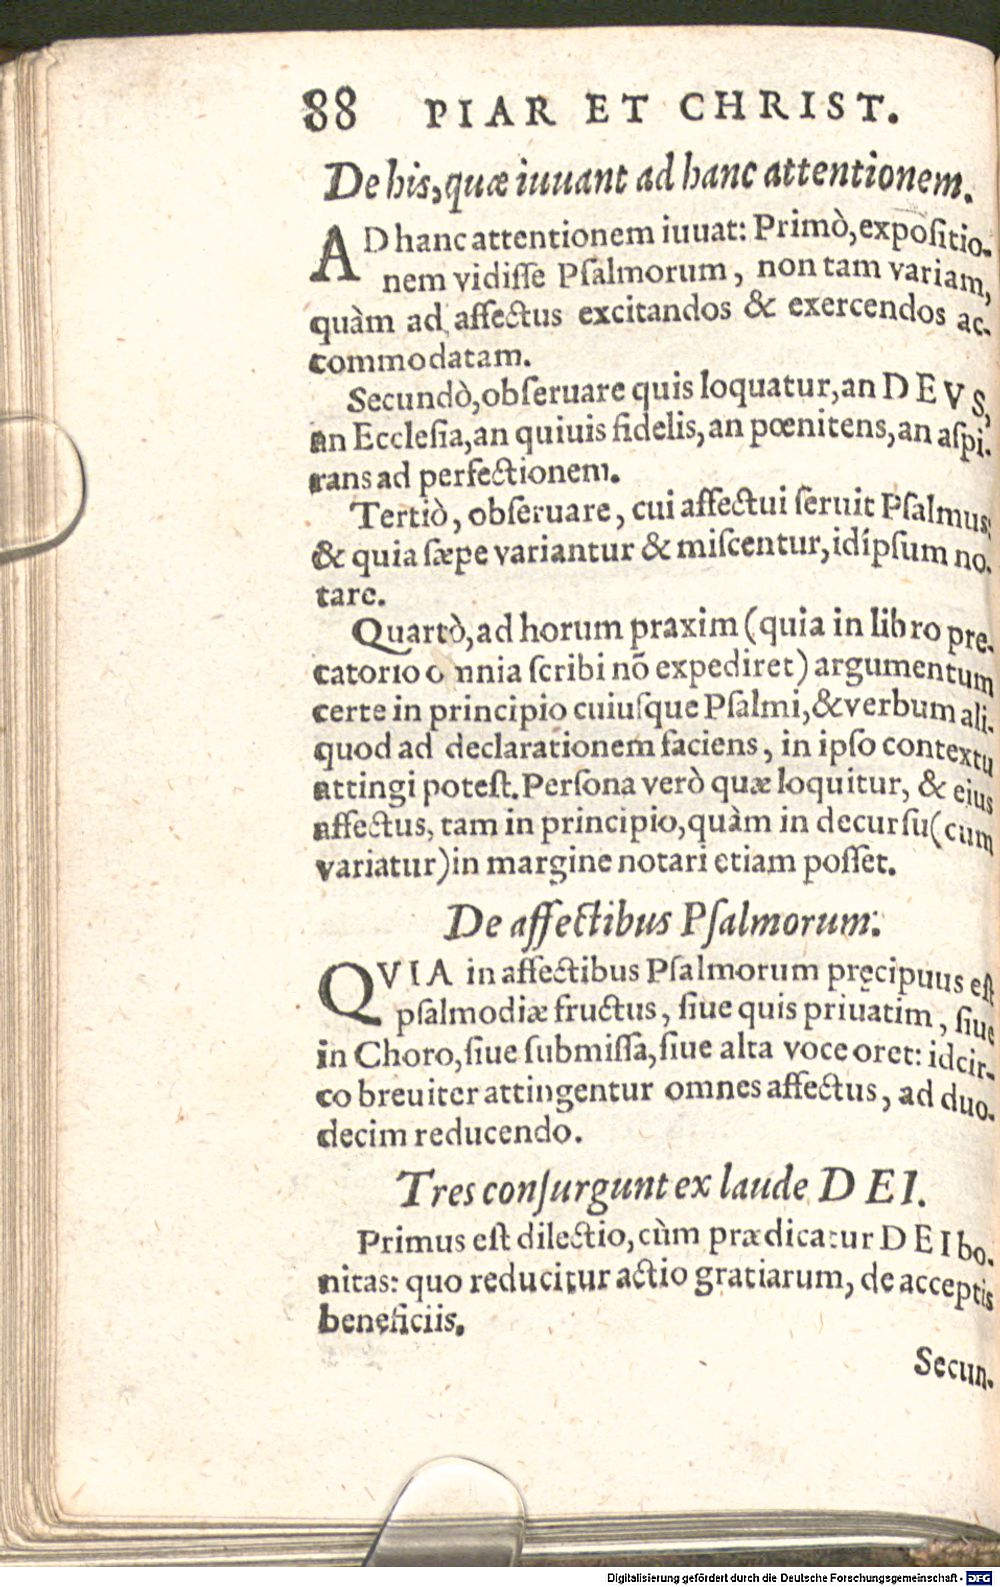 88 PIAR ET CHRIST.
De his, quæ iuuant ad hanc attentionem.
AD hanc attentionem iuuat: Primò, expositio-
nem vidisse Psalmorum, non tam variam,
quàm ad affectus excitandos & exercendos ac-
commodatam.
Secundò, obseruare quis loquatur, an DEVS,
an Ecclesia, an quiuis fidelis, an pœnitens, an aspi-
rans ad perfectionem.
Tertiò, obseruare, cui affectui seruit Psalmus:
& quia sæpe variantur & miscentur, idípsum no-
tare.
Quartò, ad horum praxim (quia in libro pre-
catorio omnia scribi nõ expediret) argumentum
certe in principio cuiusque Psalmi, & verbum ali-
quod ad declarationem faciens, in ipso contextu
attingi potest. Persona verò quæ loquitur, & eius
affectus, tam in principio, quàm in decursu (cum
variatur) in margine notari etiam posset.
De affectibus Psalmorum.
QVIA in affectibus Psalmorum pręcipuus est
psalmodiæ fructus, siue quis priuatim, siue
in Choro, siue submissa, siue alta voce oret: idcir-
co breuiter attingentur omnes affectus, ad duo-
decim reducendo.
Tres consurgunt ex laude DEI.
Primus est dilectio, cùm prædicatur DEI bo-
nitas: quo reducitur actio gratiarum, de acceptis
beneficiis.
Secun-
Digitalisierung gefördert durch die Deutsche Forschungsgemeinschaft - DFG